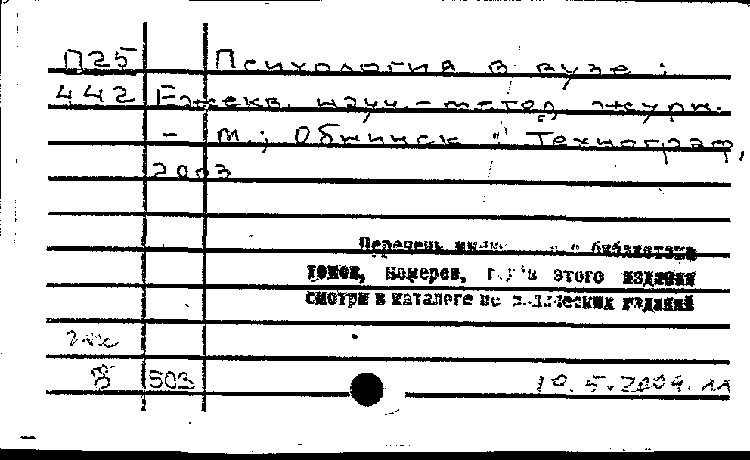 П25 Психология в вузе :
442 Ежекв. науч.-метод. журн.
- М.; Обнинск : Технограф,
2003
Перечень библиотеке
томов, номеров, этого издания
смотри в каталоге изданий
8 503 10.5.2004.